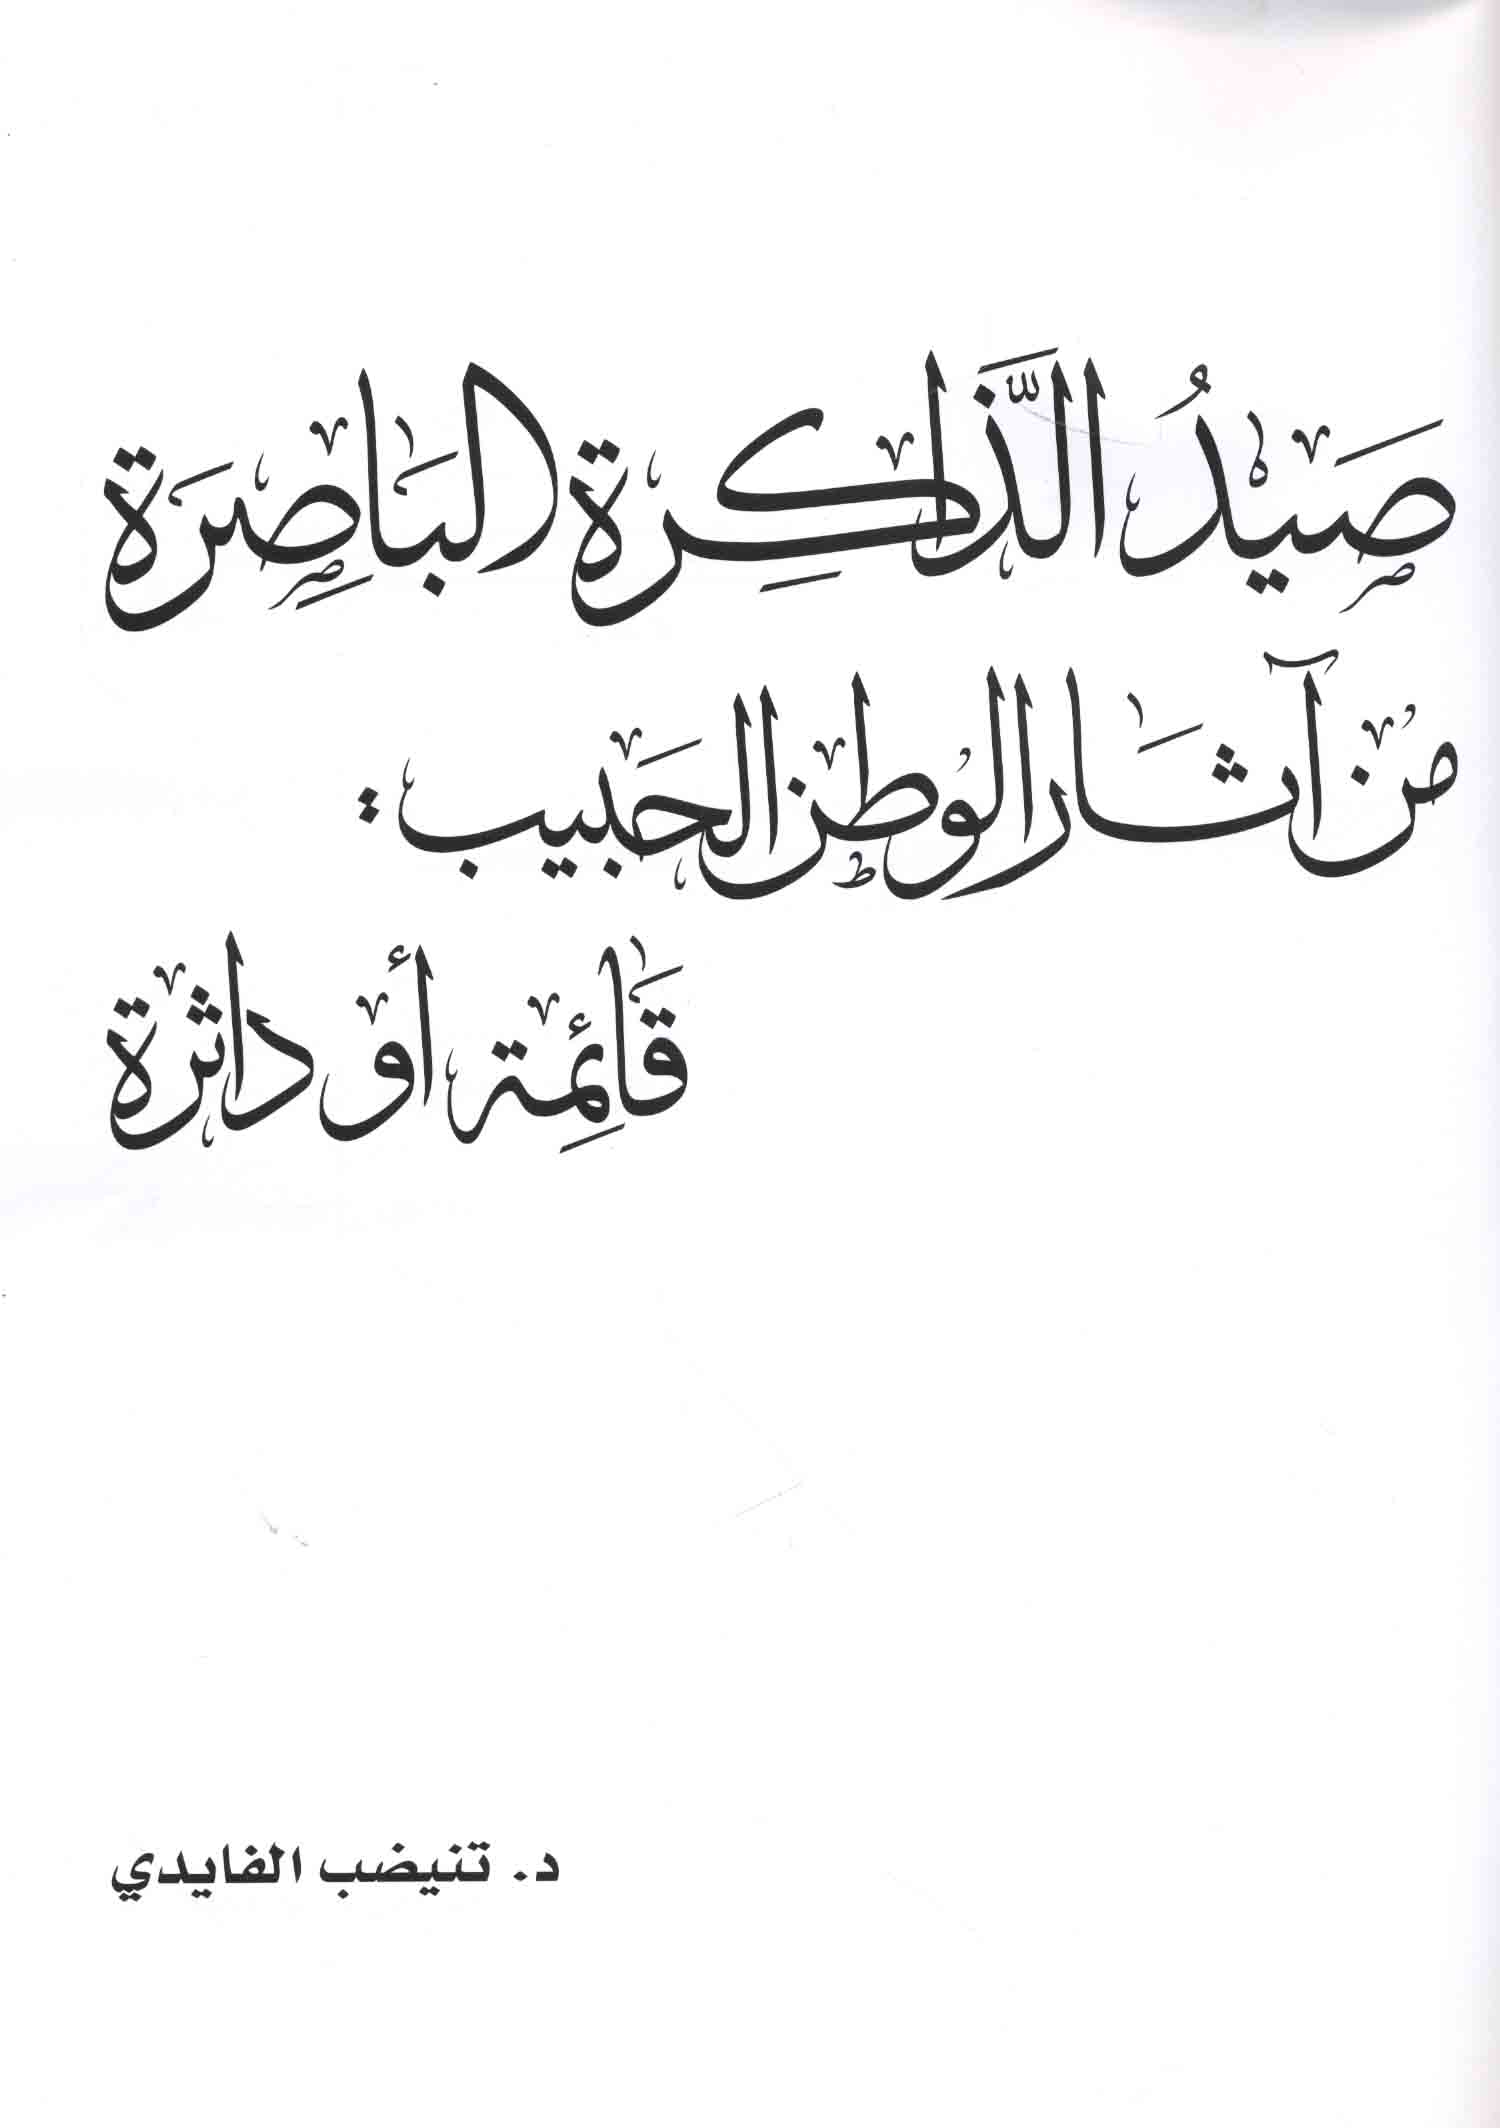 صَيْدُ الذَّاكِرَةِ البَاصِرَة
مِنْ آثَارِ الوَطَنِ الحَبِيبِ:
قَائِمَة أَوْ دَاثِرَة
د. تنيضب الفايدي